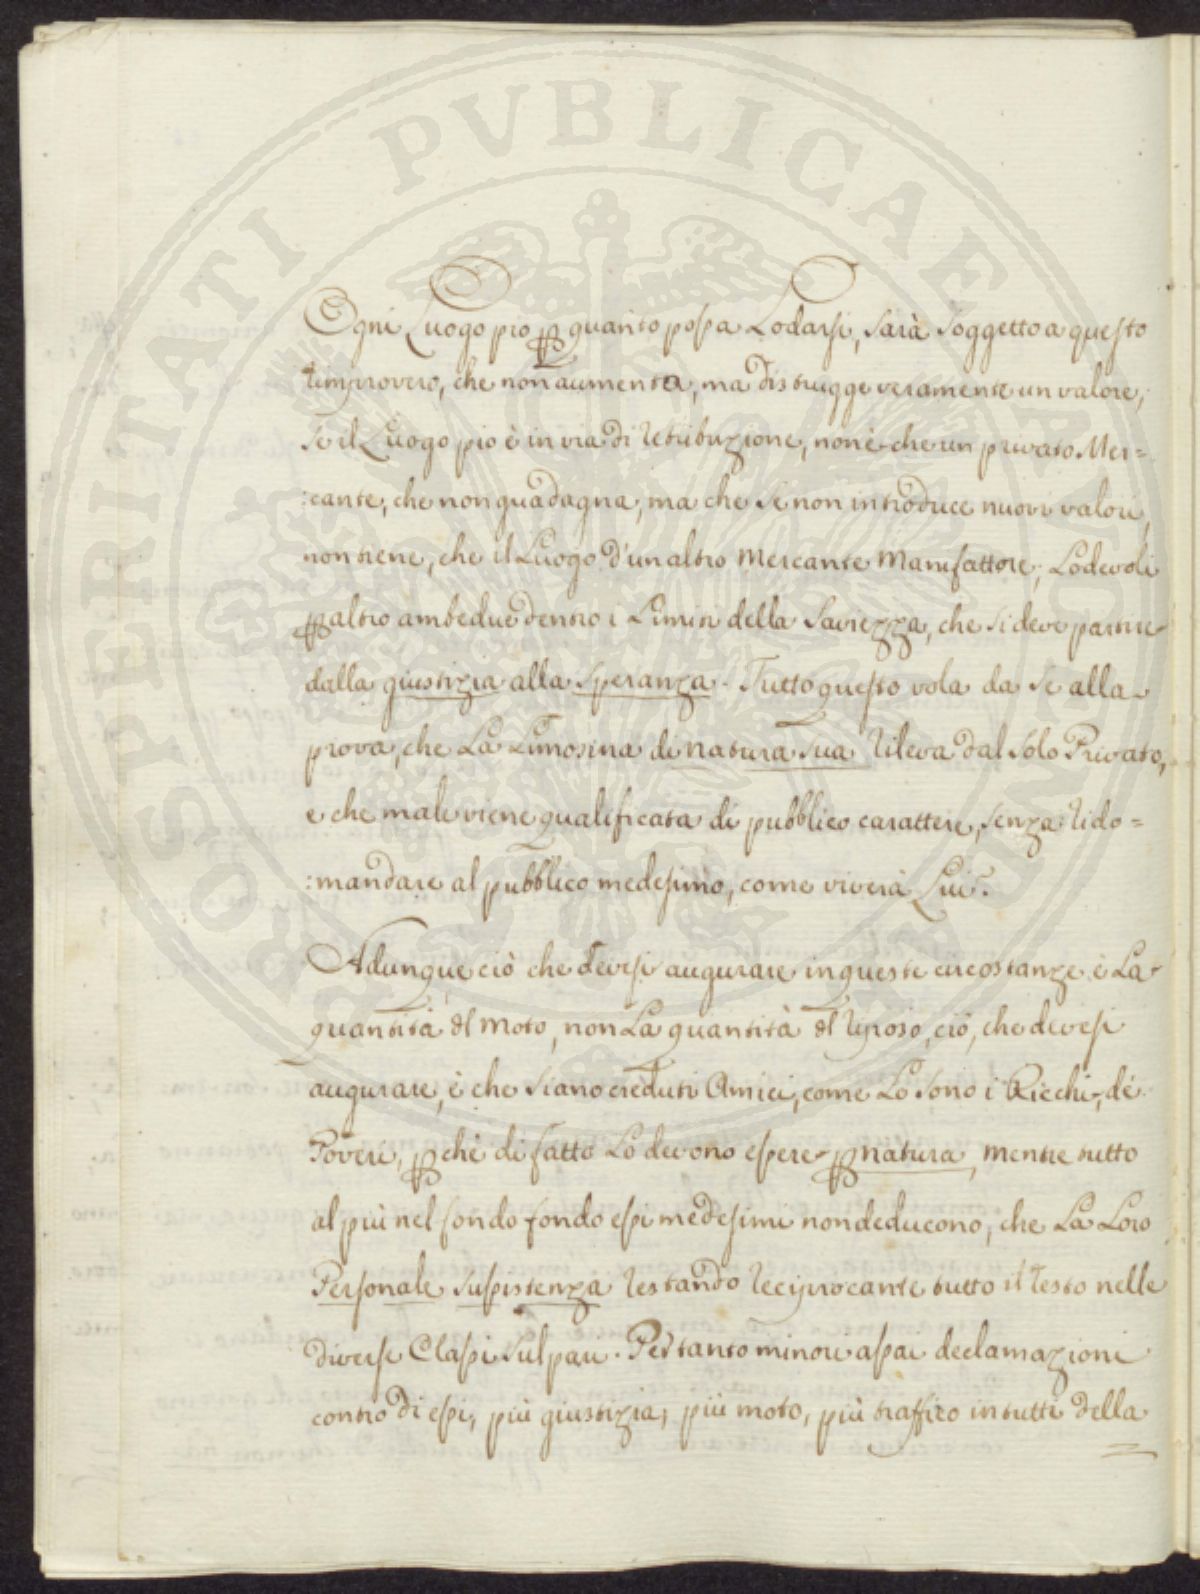 PROSPERITATI PUBLICAE AUGENDAE
Ogni Luogo pio per quanto possa Lodarsi, sarà soggetto a questo
rimprovero, che non aumenta, ma distrugge veramente un valore,
se il Luogo pio è in via di retribuzione, non è che un privato Mer=
:cante, che non guadagna, ma che se non introduce nuovi valori,
non tiene, che il Luogo d'un altro Mercante Manifattore, Lodevoli
per altro ambedue dentro i Limiti della Saviezza, che si deve partire
dalla giustizia alla speranza. Tutto questo vola da se alla
prova, che La Limosina di natura sua rileva dal solo Privato,
e che male viene qualificata di pubblico carattere, senza rido=
:mandare al pubblico medesimo, come viverà Lui?
Adunque ciò che devesi augurare in queste circostanze è La
quantità del moto, non La quantità del riposo, ciò, che devesi
augurare, è che siano creduti Amici, come Lo sono i Ricchi, de'
Poveri, perchè di fatto Lo devono essere per natura, mentre tutto
al più nel fondo fondo essi medesimi non deducono, che La Loro
Personale sussistenza restando reciprocante tutto il resto nelle
diverse Classi sul pari. Pertanto minori assai declamazioni
contro di essi, più giustizia, più moto, più traffico in tutti della